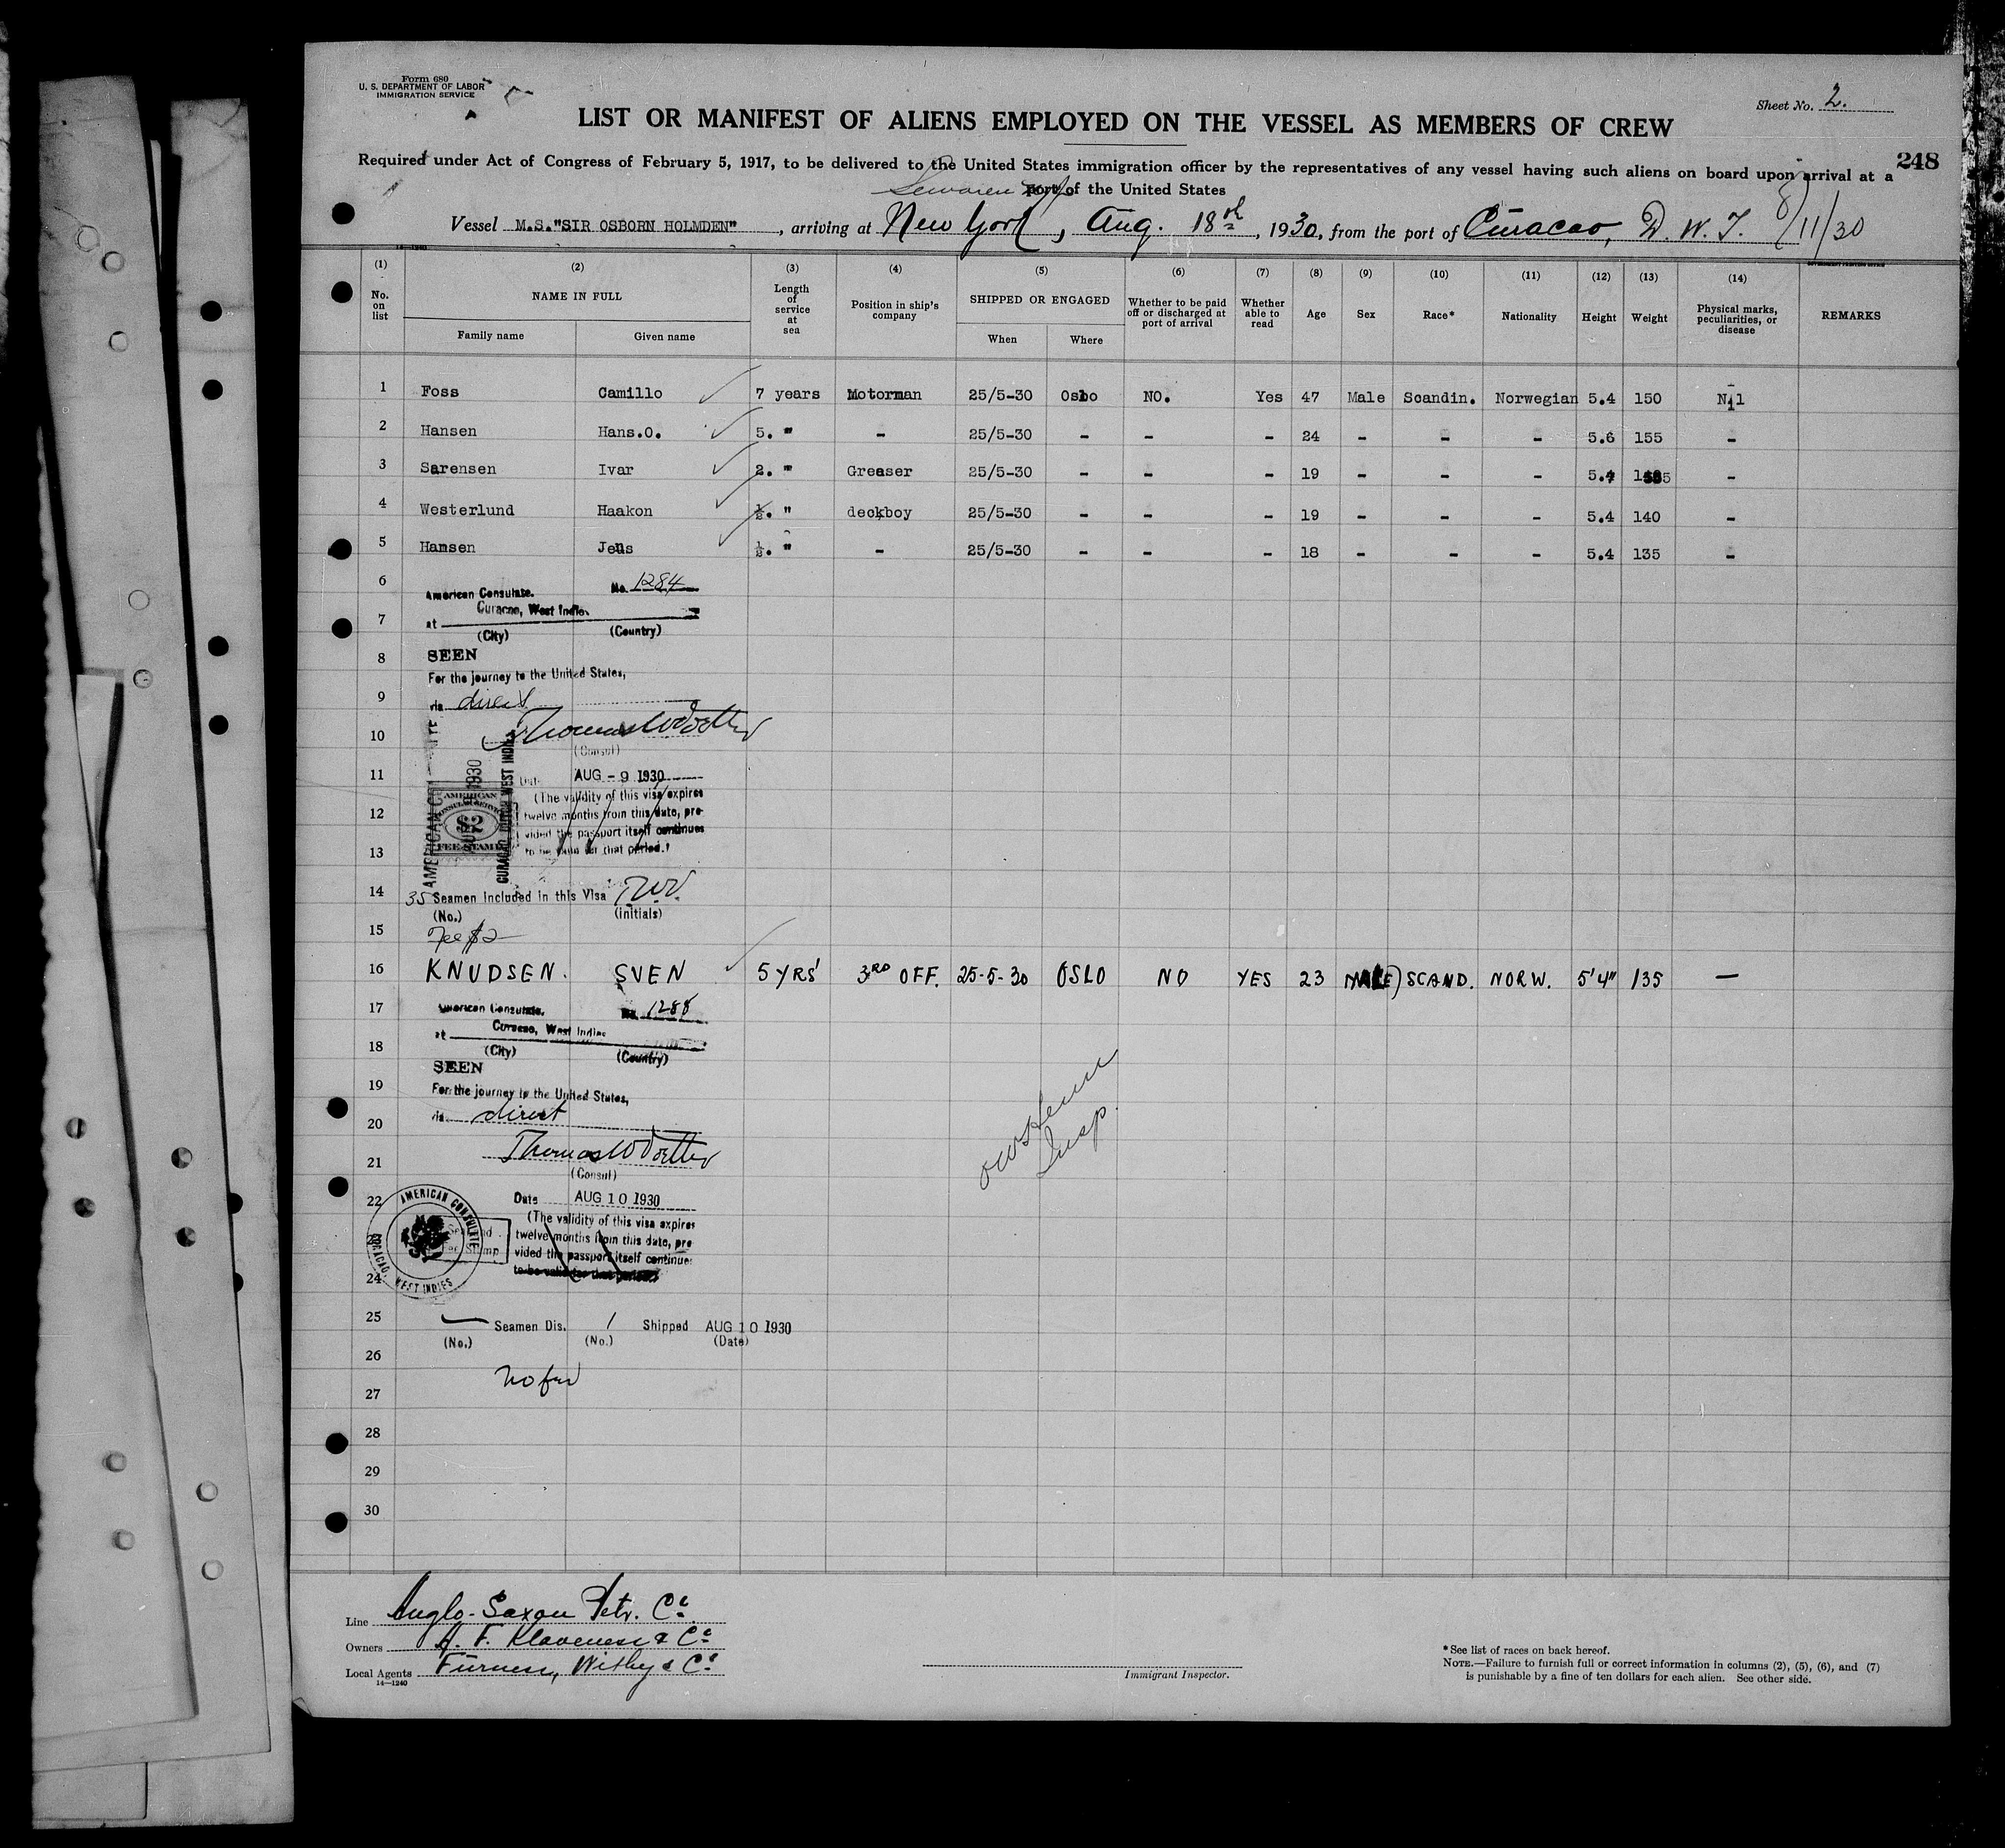 Form 680
U. S. DEPARTMENT OF LABOR
IMMIGRATION SERVICE
Sheet No. 2.
LIST OR MANIFEST OF ALIENS EMPLOYED ON THE VESSEL AS MEMBERS OF CREW
248
Required under Act of Congress of February 5, 1917, to be delivered to the United States immigration officer by the representatives of any vessel having such aliens on board upon arrival at a
Sewaren port of the United States
Vessel M.S."SIR OSBORN HOLMDEN", arriving at New York, Aug. 18th, 1930, from the port of Curacao, D. W. I. 8/11/30
(1) (2) (3) (4) (5) (6) (7) (8) (9) (10) (11) (12) (13) (14)
No. on list NAME IN FULL Length of service at sea Position in ship's company SHIPPED OR ENGAGED Whether to be paid off or discharged at port of arrival Whether able to read Age Sex Race* Nationality Height Weight Physical marks, peculiarities, or disease REMARKS
Family name Given name When Where
1 Foss Camillo 7 years Motorman 25/5-30 Oslo NO. Yes 47 Male Scandin. Norwegian 5.4 150 Nil
2 Hansen Hans.O. 5. " - 25/5-30 - - - 24 - - - 5.6 155 -
3 Sørensen Ivar 2. " Greaser 25/5-30 - - - 19 - - - 5.4 -
4 Westerlund Haakon ½. " deckboy 25/5-30 - - - 19 - - - 5.4 140 -
5 Hansen Jens ½. " - 25/5-30 - - - 18 - - - 5.4 135 -
6
American Consulate. No. 1284
7
at Curacao, West Indies
(City) (Country)
8
SEEN
For the journey to the United States,
9
via direct
10
(Consul)
11
AUG - 9 1930
(The validity of this visa expires
12
twelve months from this date, pro-
vided the passport itself continues
13
to be valid for that period.)
AMERICAN CONSULAR SERVICE
$2
FEE STAMP
CURACAO, DUTCH WEST INDIES
14
35 Seamen included in this Visa
(No.) (initials)
15
Fee $2
16 KNUDSEN. SVEN 5 YRS' 3RD OFF. 25-5-30 OSLO NO YES 23 MALE SCAND. NORW. 5'4" 135 —
17
American Consulate. No. 1288
at Curacao, West Indies
18
(City) (Country)
SEEN
19
For the journey to the United States,
via direct
20
21
(Consul)
22
Date AUG 10 1930
(The validity of this visa expires
twelve months from this date, pro
vided the passport itself continues
to be valid for that period.)
AMERICAN CONSULATE
CURACAO, WEST INDIES
24
25
— Seamen Dis. 1 Shipped AUG 10 1930
(No.) (No.) (Date)
26
no fee
27
28
29
30
Insp.
Line Anglo-Saxon Petr. Co.
Owners A. F. Klaveness & Co.
Local Agents Furness, Withy & Co.
14—1240
Immigrant Inspector.
*See list of races on back hereof.
NOTE.—Failure to furnish full or correct information in columns (2), (5), (6), and (7)
is punishable by a fine of ten dollars for each alien. See other side.